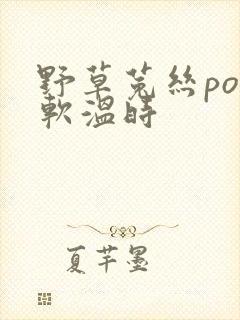 野草菟絲po
軟溫時
夏芊墨